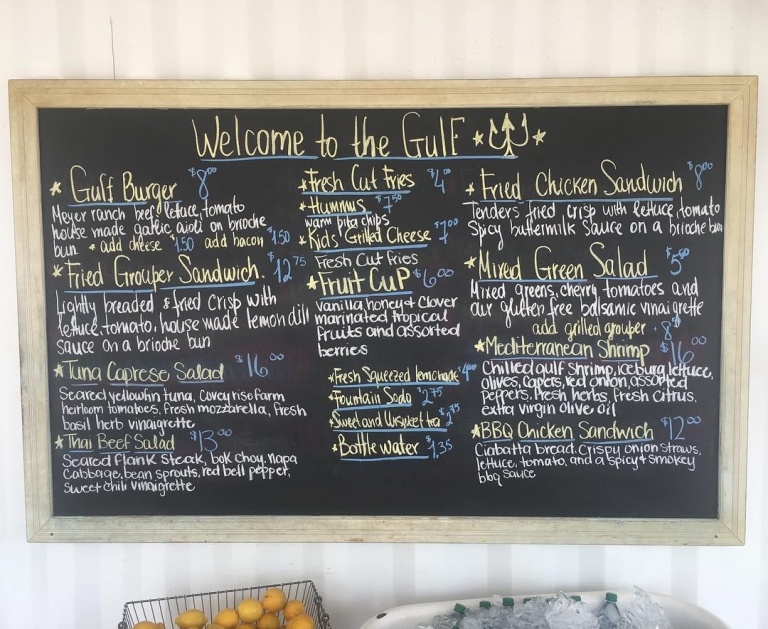 Welcome to the Gulf
* Gulf Burger $8.00
Meyer ranch beef, lettuce, tomato
house made garlic aioli on brioche
bun * add cheese $1.50 add bacon $1.50
* Fried Grouper Sandwich. $12.75
Lightly breaded & fried crisp with
lettuce, tomato, house made lemon dill
sauce on a brioche bun
* Tuna Caprese Salad $16.00
Seared yellowfin tuna, Covey rise farm
heirloom tomatoes, fresh mozzarella, fresh
basil herb vinaigrette
* Thai Beef Salad $13.00
Seared flank steak, bok choy, napa
cabbage, bean sprouts, red bell pepper,
sweet chili vinaigrette
* Fresh Cut Fries $4.00
* Hummus $7.50
warm pita chips
* Kid's Grilled Cheese $7.00
Fresh Cut fries
* Fruit Cup $6.00
vanilla honey & clover
marinated tropical
fruits and assorted
berries
* Fresh Squeezed lemonade $4.00
* Fountain Soda $2.75
* Sweet and Unsweet tea $2.75
* Bottle water $1.35
* Fried Chicken Sandwich $8.00
Tenders fried crisp with lettuce, tomato
Spicy buttermilk sauce on a brioche bun
* Mixed Green Salad $5.50
Mixed greens, cherry tomatoes and
our gluten free balsamic vinaigrette
add grilled grouper +
* Mediterranean Shrimp $16.00
Chilled gulf shrimp, iceburg lettuce,
olives, capers, red onion, assorted
peppers, fresh herbs, fresh citrus,
extra virgin olive oil
* BBQ Chicken Sandwich $12.00
Ciabatta bread, crispy onion straws,
lettuce, tomato, and a spicy & smokey
bbq sauce